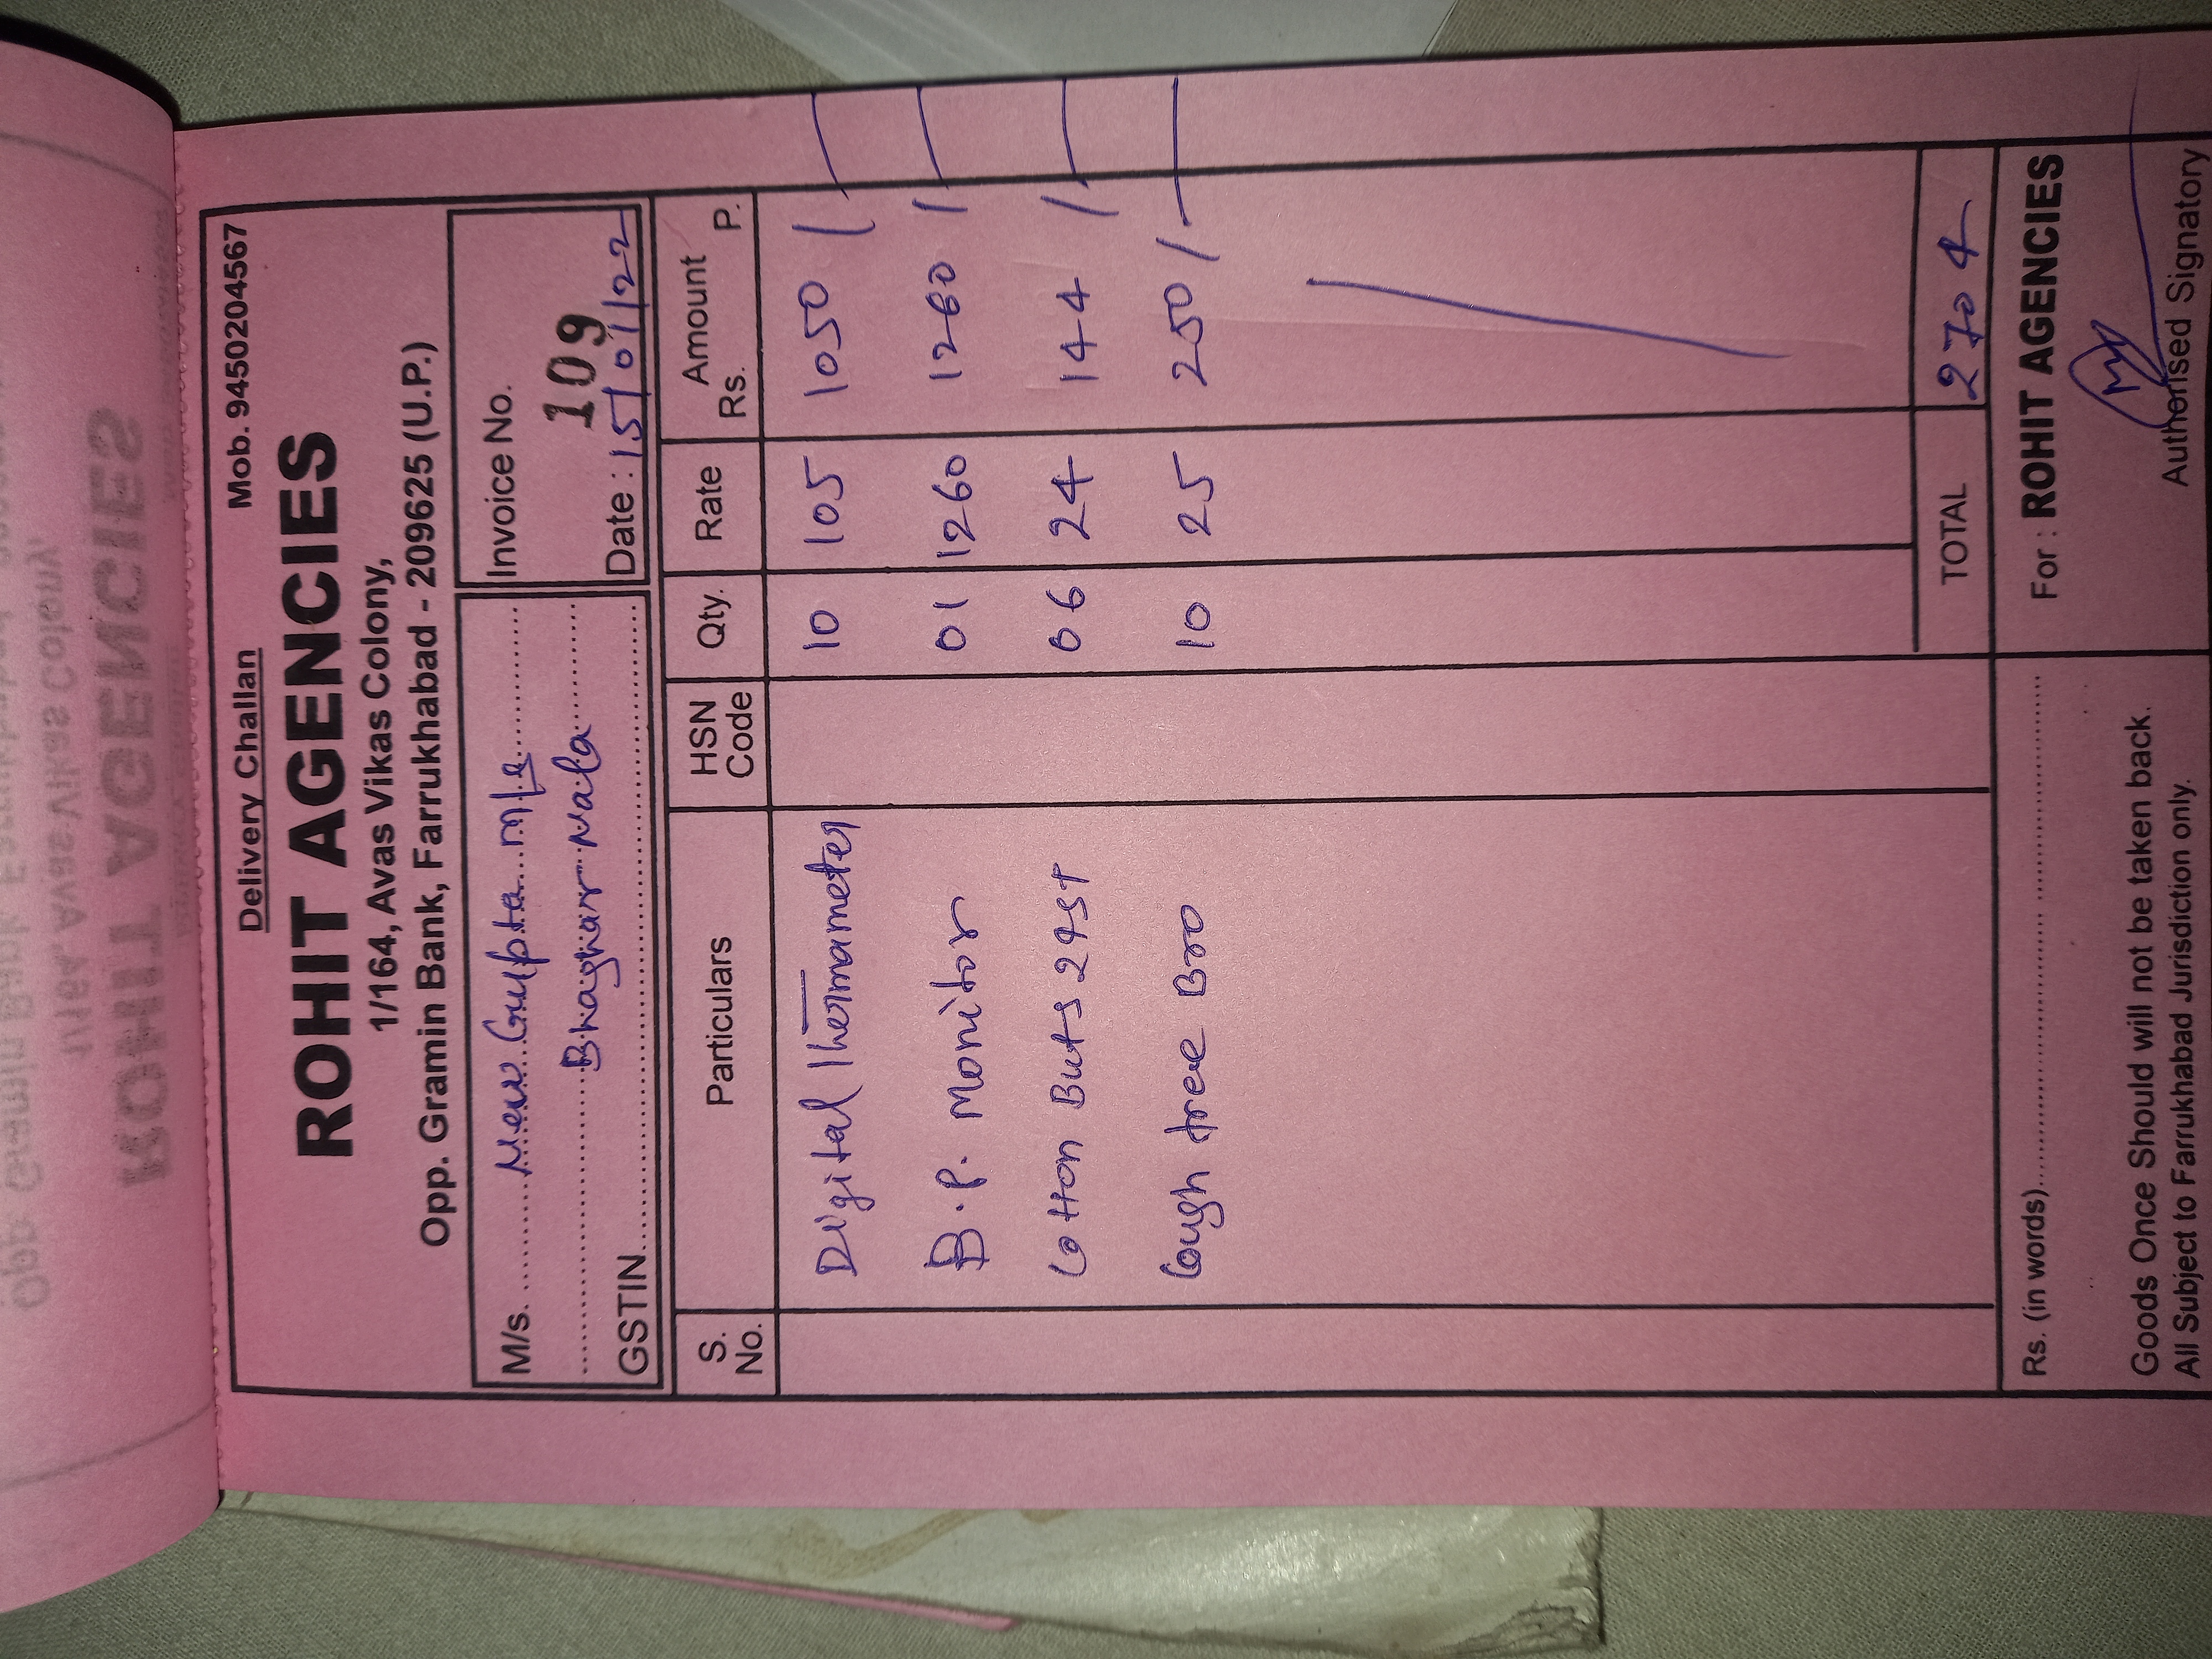 Delivery Challan Mob. 9450204567
ROHIT AGENCIES
1/164, Avas Vikas Colony,
Opp. Gramin Bank, Farrukhabad - 209625 (U.P.)
M/s. New Gupta M/s Invoice No.
Bhaghar Nala 109
GSTIN Date : 15/01/22
S. No. Particulars HSN Code Qty. Rate Amount Rs. P.
Digital Thermameter 10 105 1050/-
B.P. Monitor 01 1260 1260/-
Cotton Buts 24st 06 24 144/-
Cough free Bro 10 25 250/-
TOTAL 2704
Rs. (in words) For : ROHIT AGENCIES
Goods Once Should will not be taken back.
All Subject to Farrukhabad Jurisdiction only. Authorised Signatory